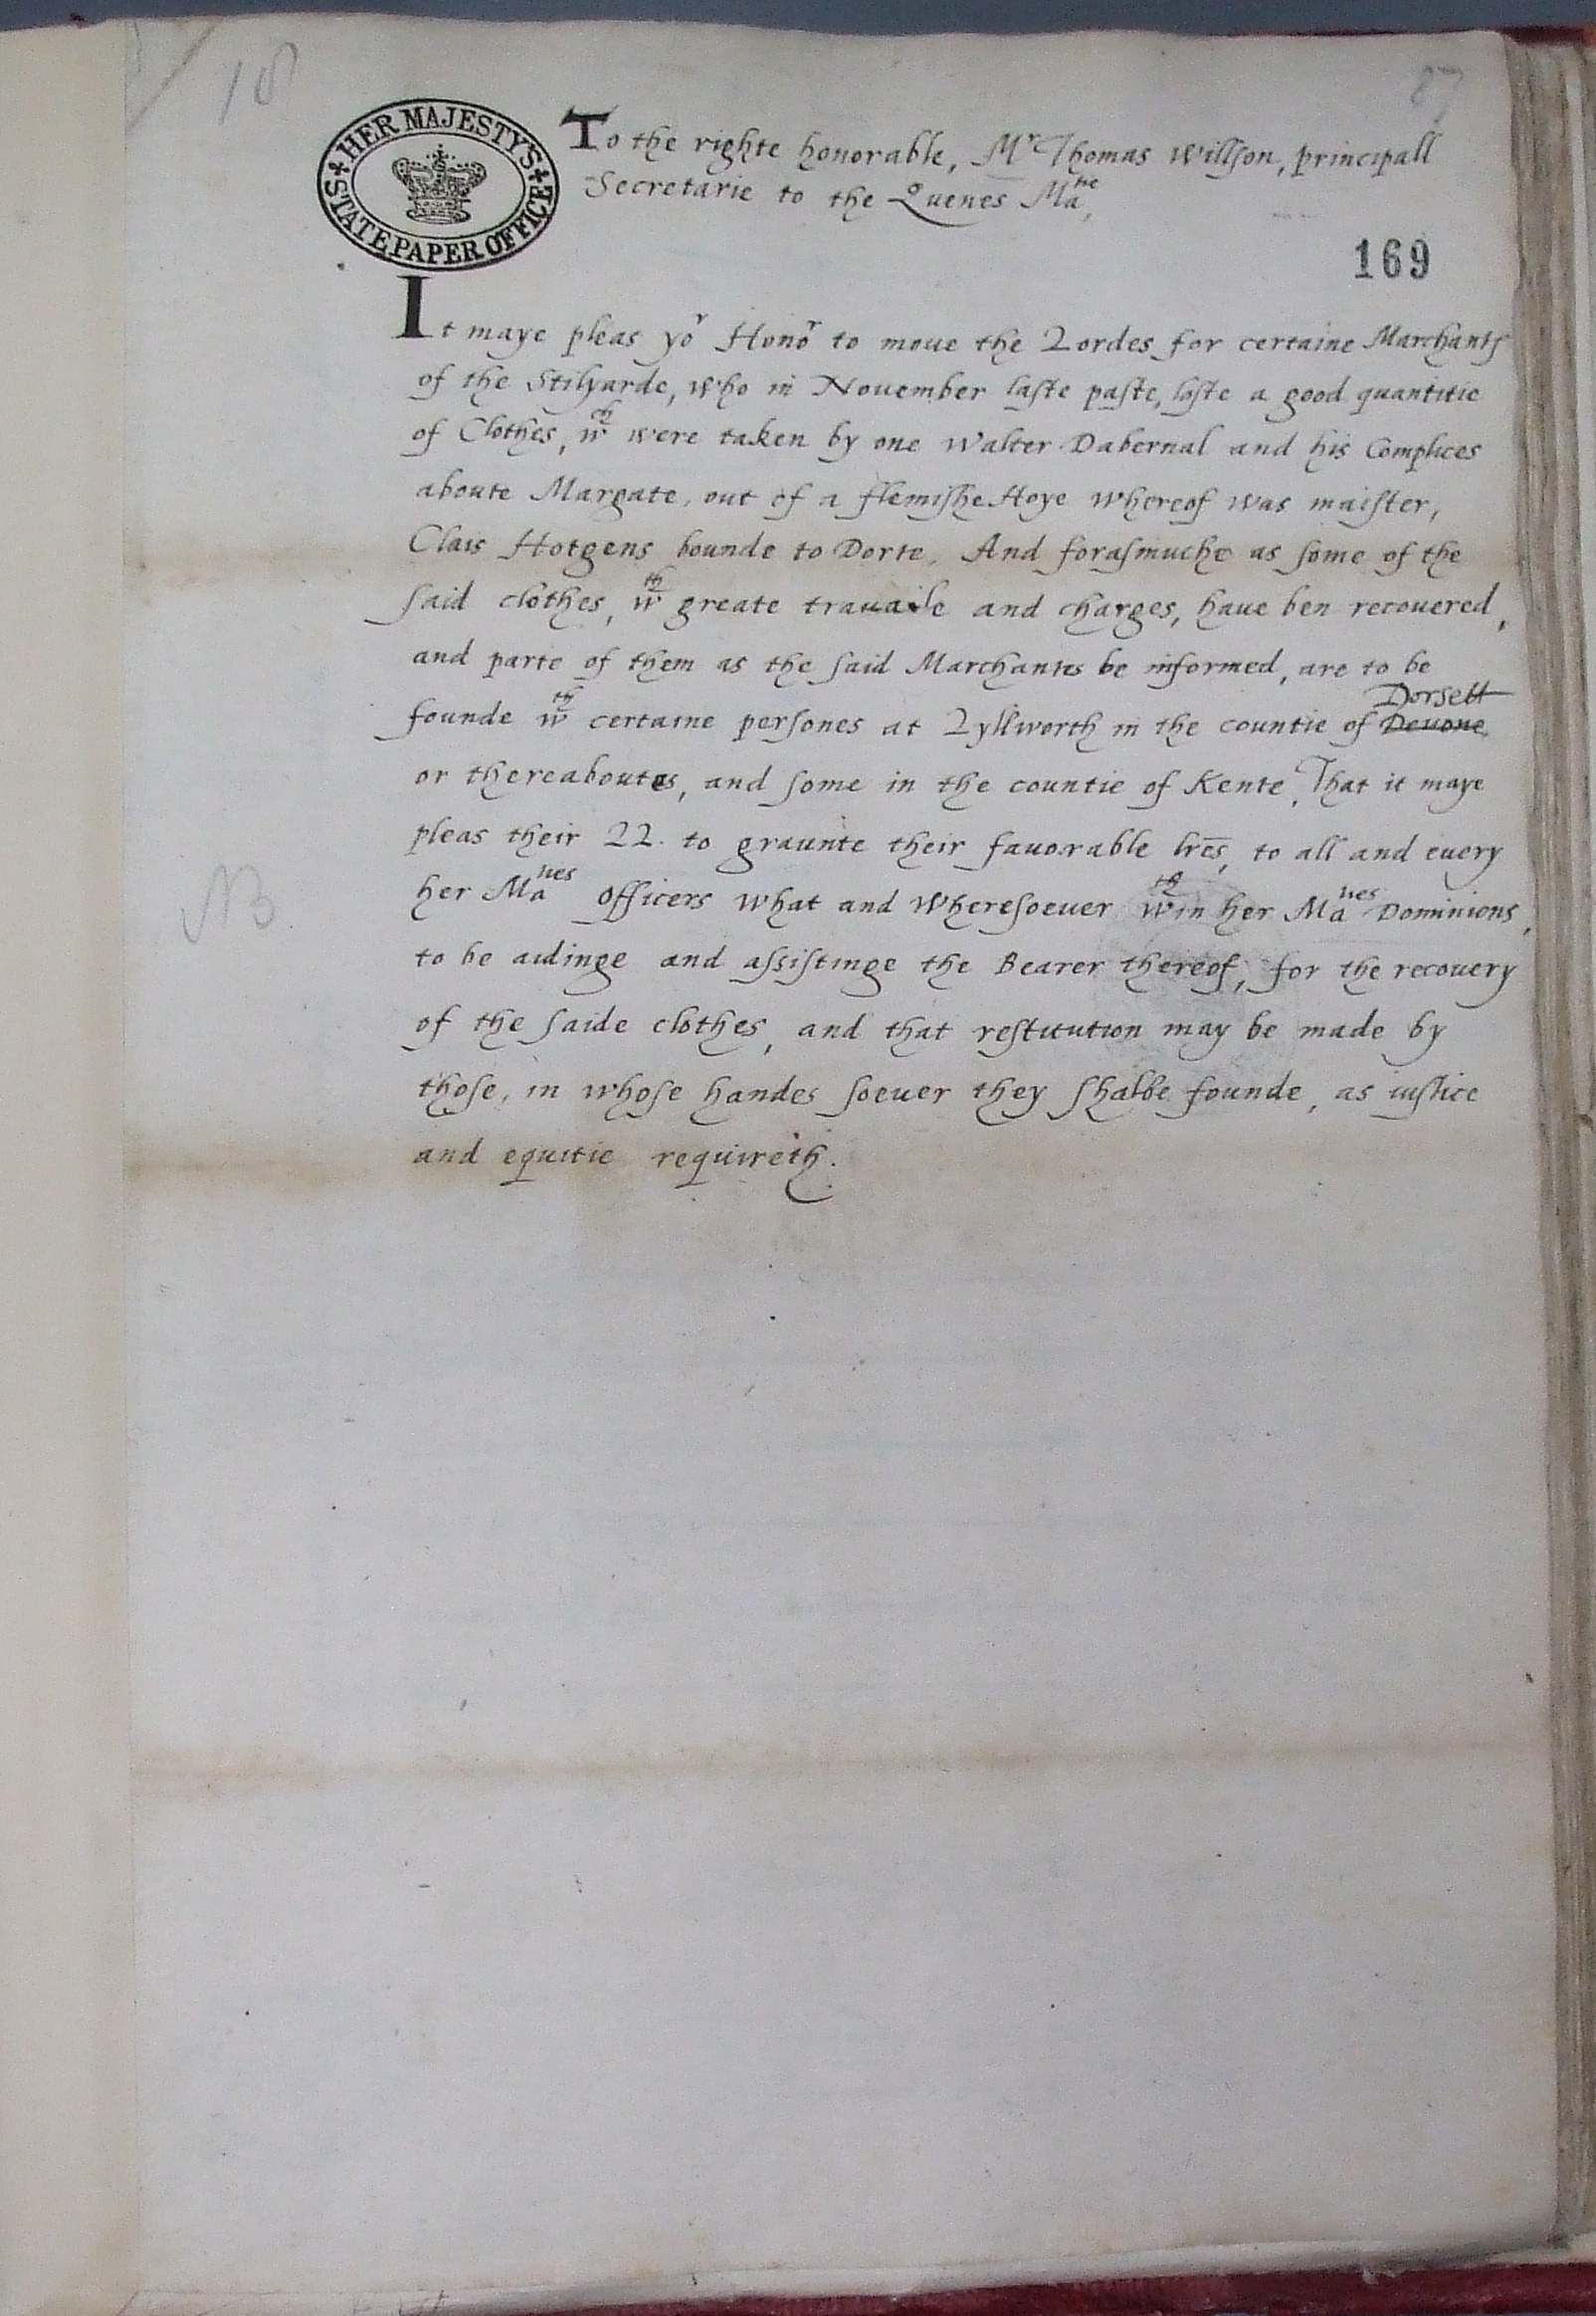 18
87
HER MAJESTY'S
STATE PAPER OFFICE
To the righte honorable, Mr Thomas Willson, principall
Secretarie to the Quenes Matie,
169
It maye pleas yor Honor to moue the Lordes for certaine Marchants
of the Stilyarde, who in Nouember laste paste, loste a good quantitie
of Clothes, wch were taken by one Walter Dabernal and his Complices
aboute Margate, out of a flemishe Hoye whereof was maister,
Clais Hotgens bounde to Dorte. And forasmuche as some of the
said clothes, wth greate trauaile and charges, haue ben recouered,
and parte of them as the said Marchantes be informed, are to be
Dorsett
founde wth certaine persones at Lyllworth in the countie of Deuone,
or thereaboutes, and some in the countie of Kente, That it maye
pleas their LL. to graunte their fauorable lres, to all and euery
NB.
her Maties Officers what and wheresoeuer wthin her Maties Dominions,
to be aidinge and assistinge the Bearer thereof, for the recouery
of the saide clothes, and that restitution may be made by
those, in whose handes soeuer they shalbe founde, as iustice
and equitie requireth.